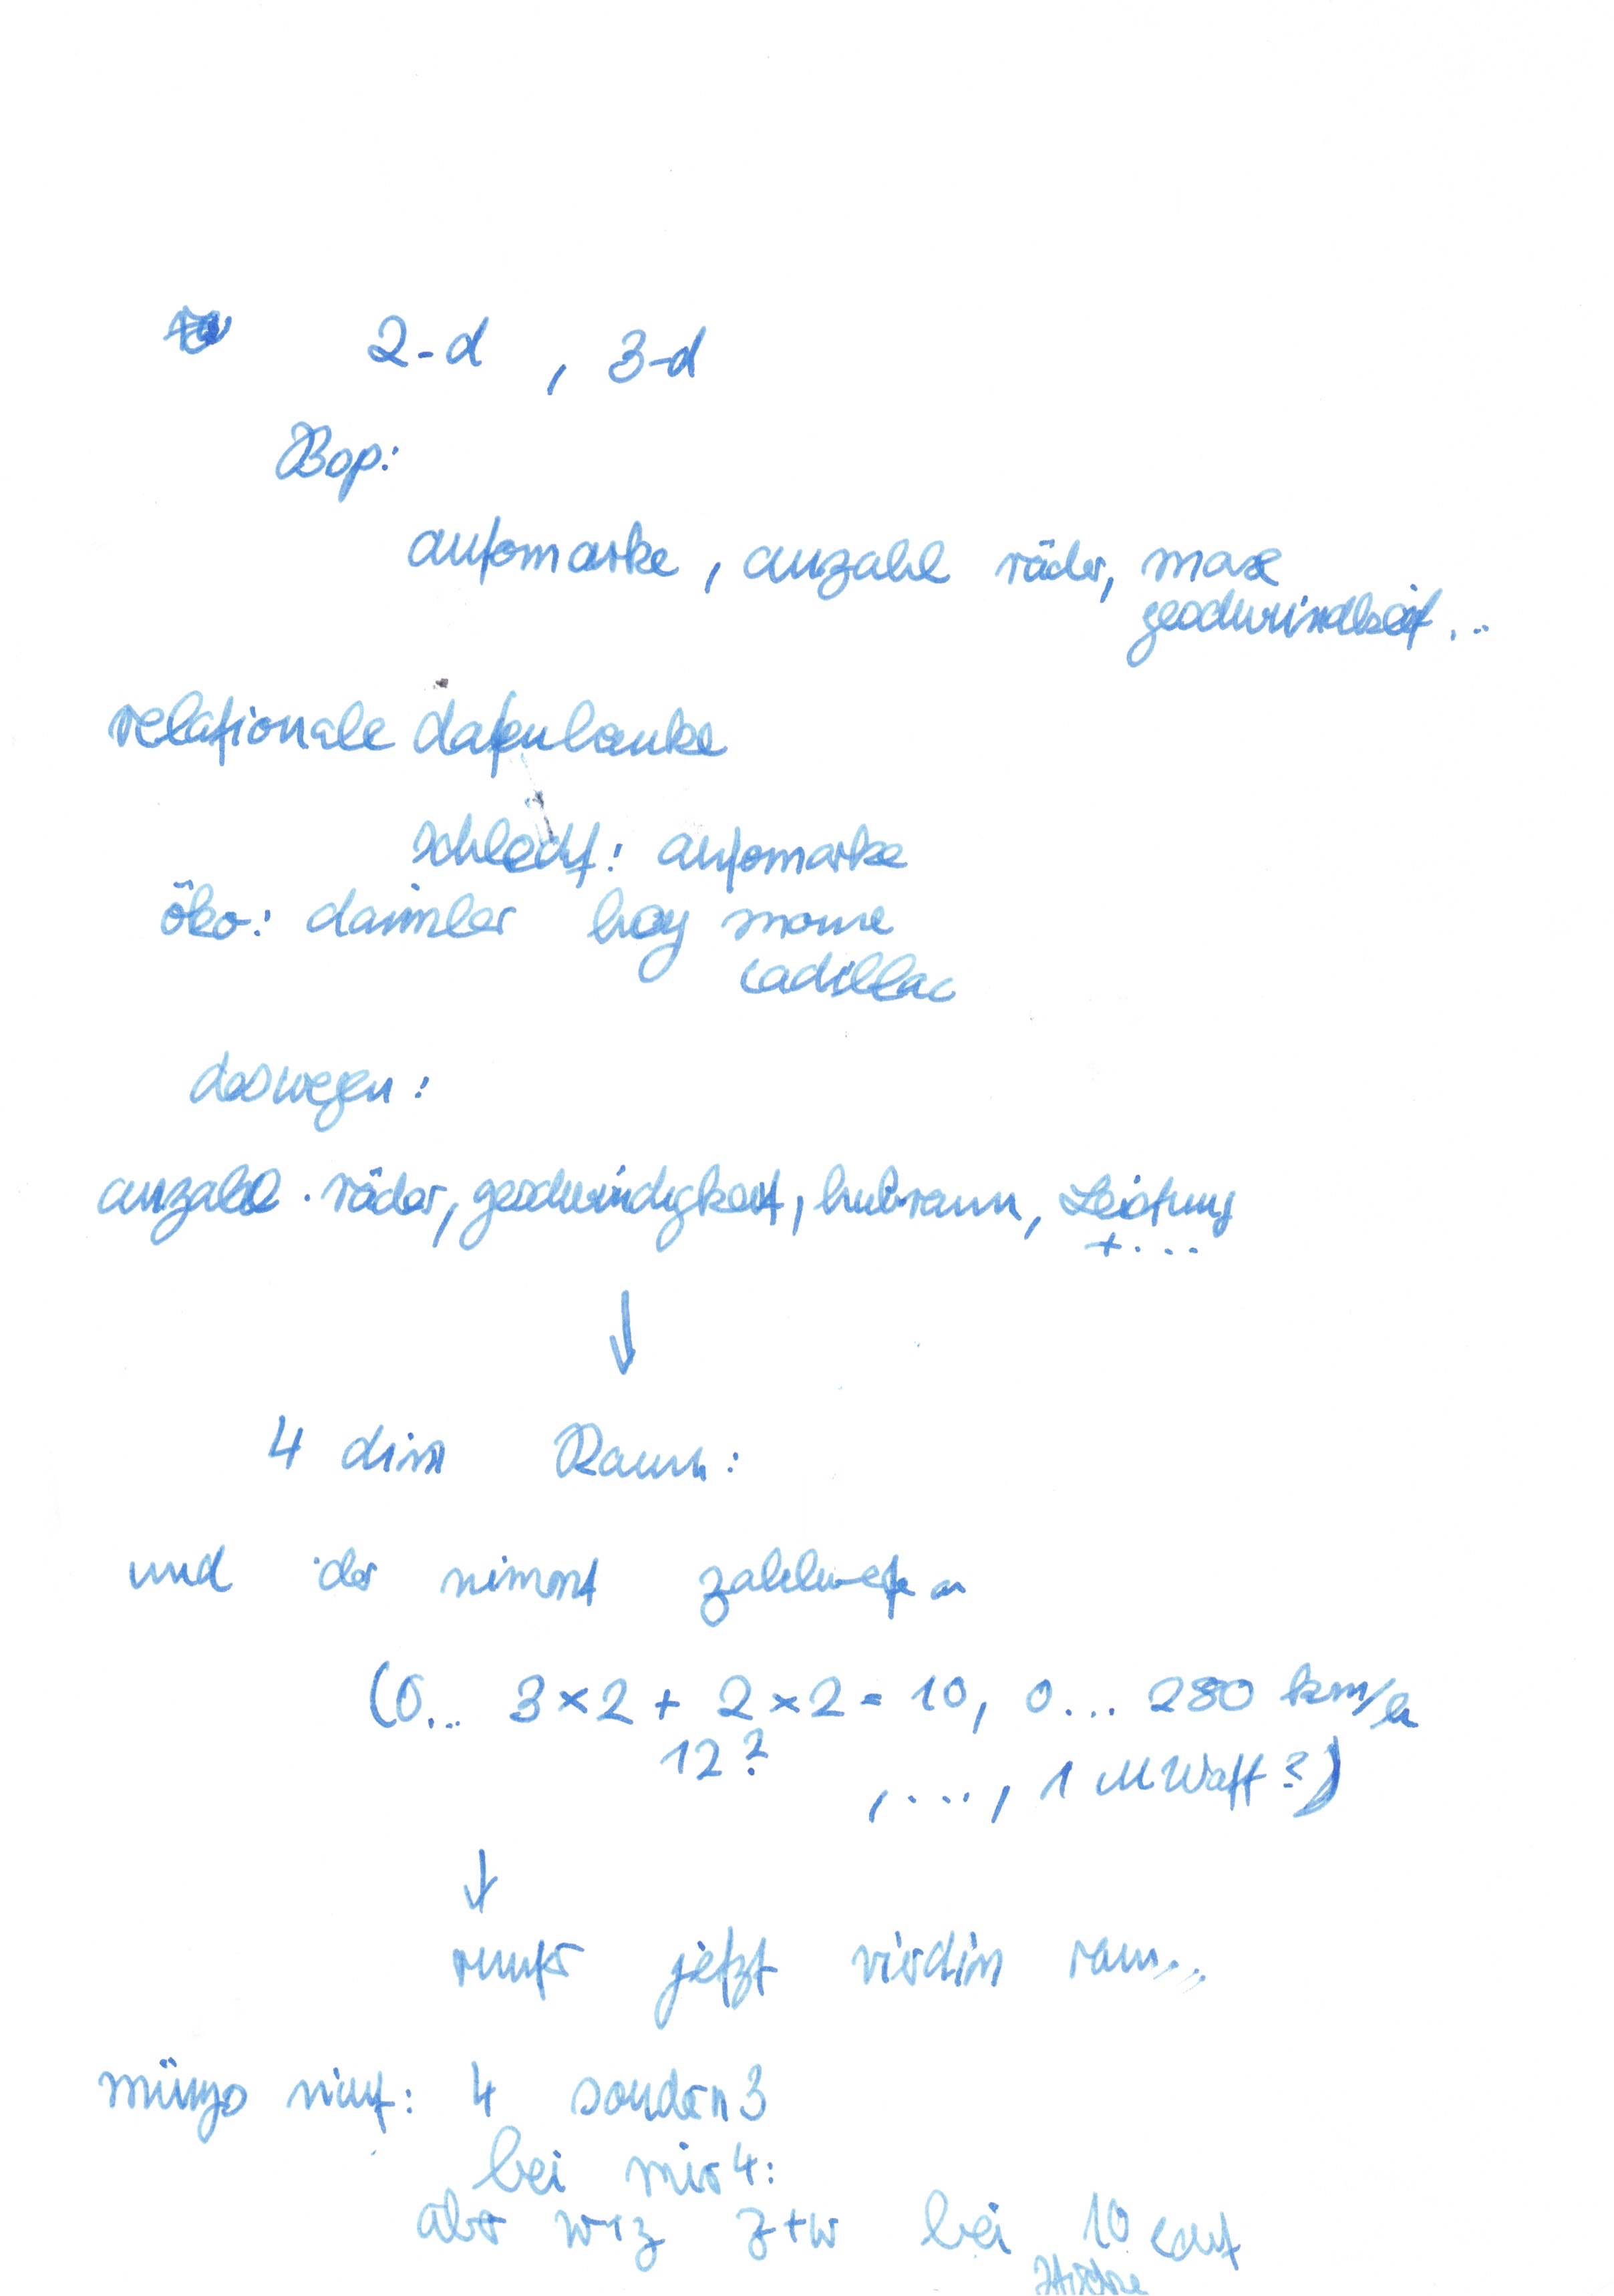 2-d , 3-d
Bsp:
automarke, anzahl räder, max
geschwindkeit...
relationale datenbanke
schlecht: automarke
öko: daimler hoy mome
cadillac
deswegen:
anzahl räder, geschwindigkeit, hubraum, Leistung
+....
↓
4 dim Raum:
und der nimmt zahlwerte an
(0... 3×2 + 2×2 = 10, 0... 280 km/h
12? , ...., 1 MWatt?)
↓
jetzt vierdim raum...
münze nicht: 4 sondern 3
bei mir 4:
aber w+z z+w bei 10 cent